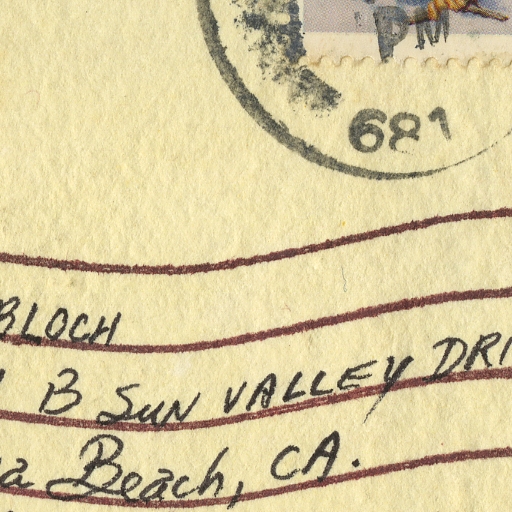 PM
681
BLOCH
B SUN VALLEY DRI
a Beach, CA.